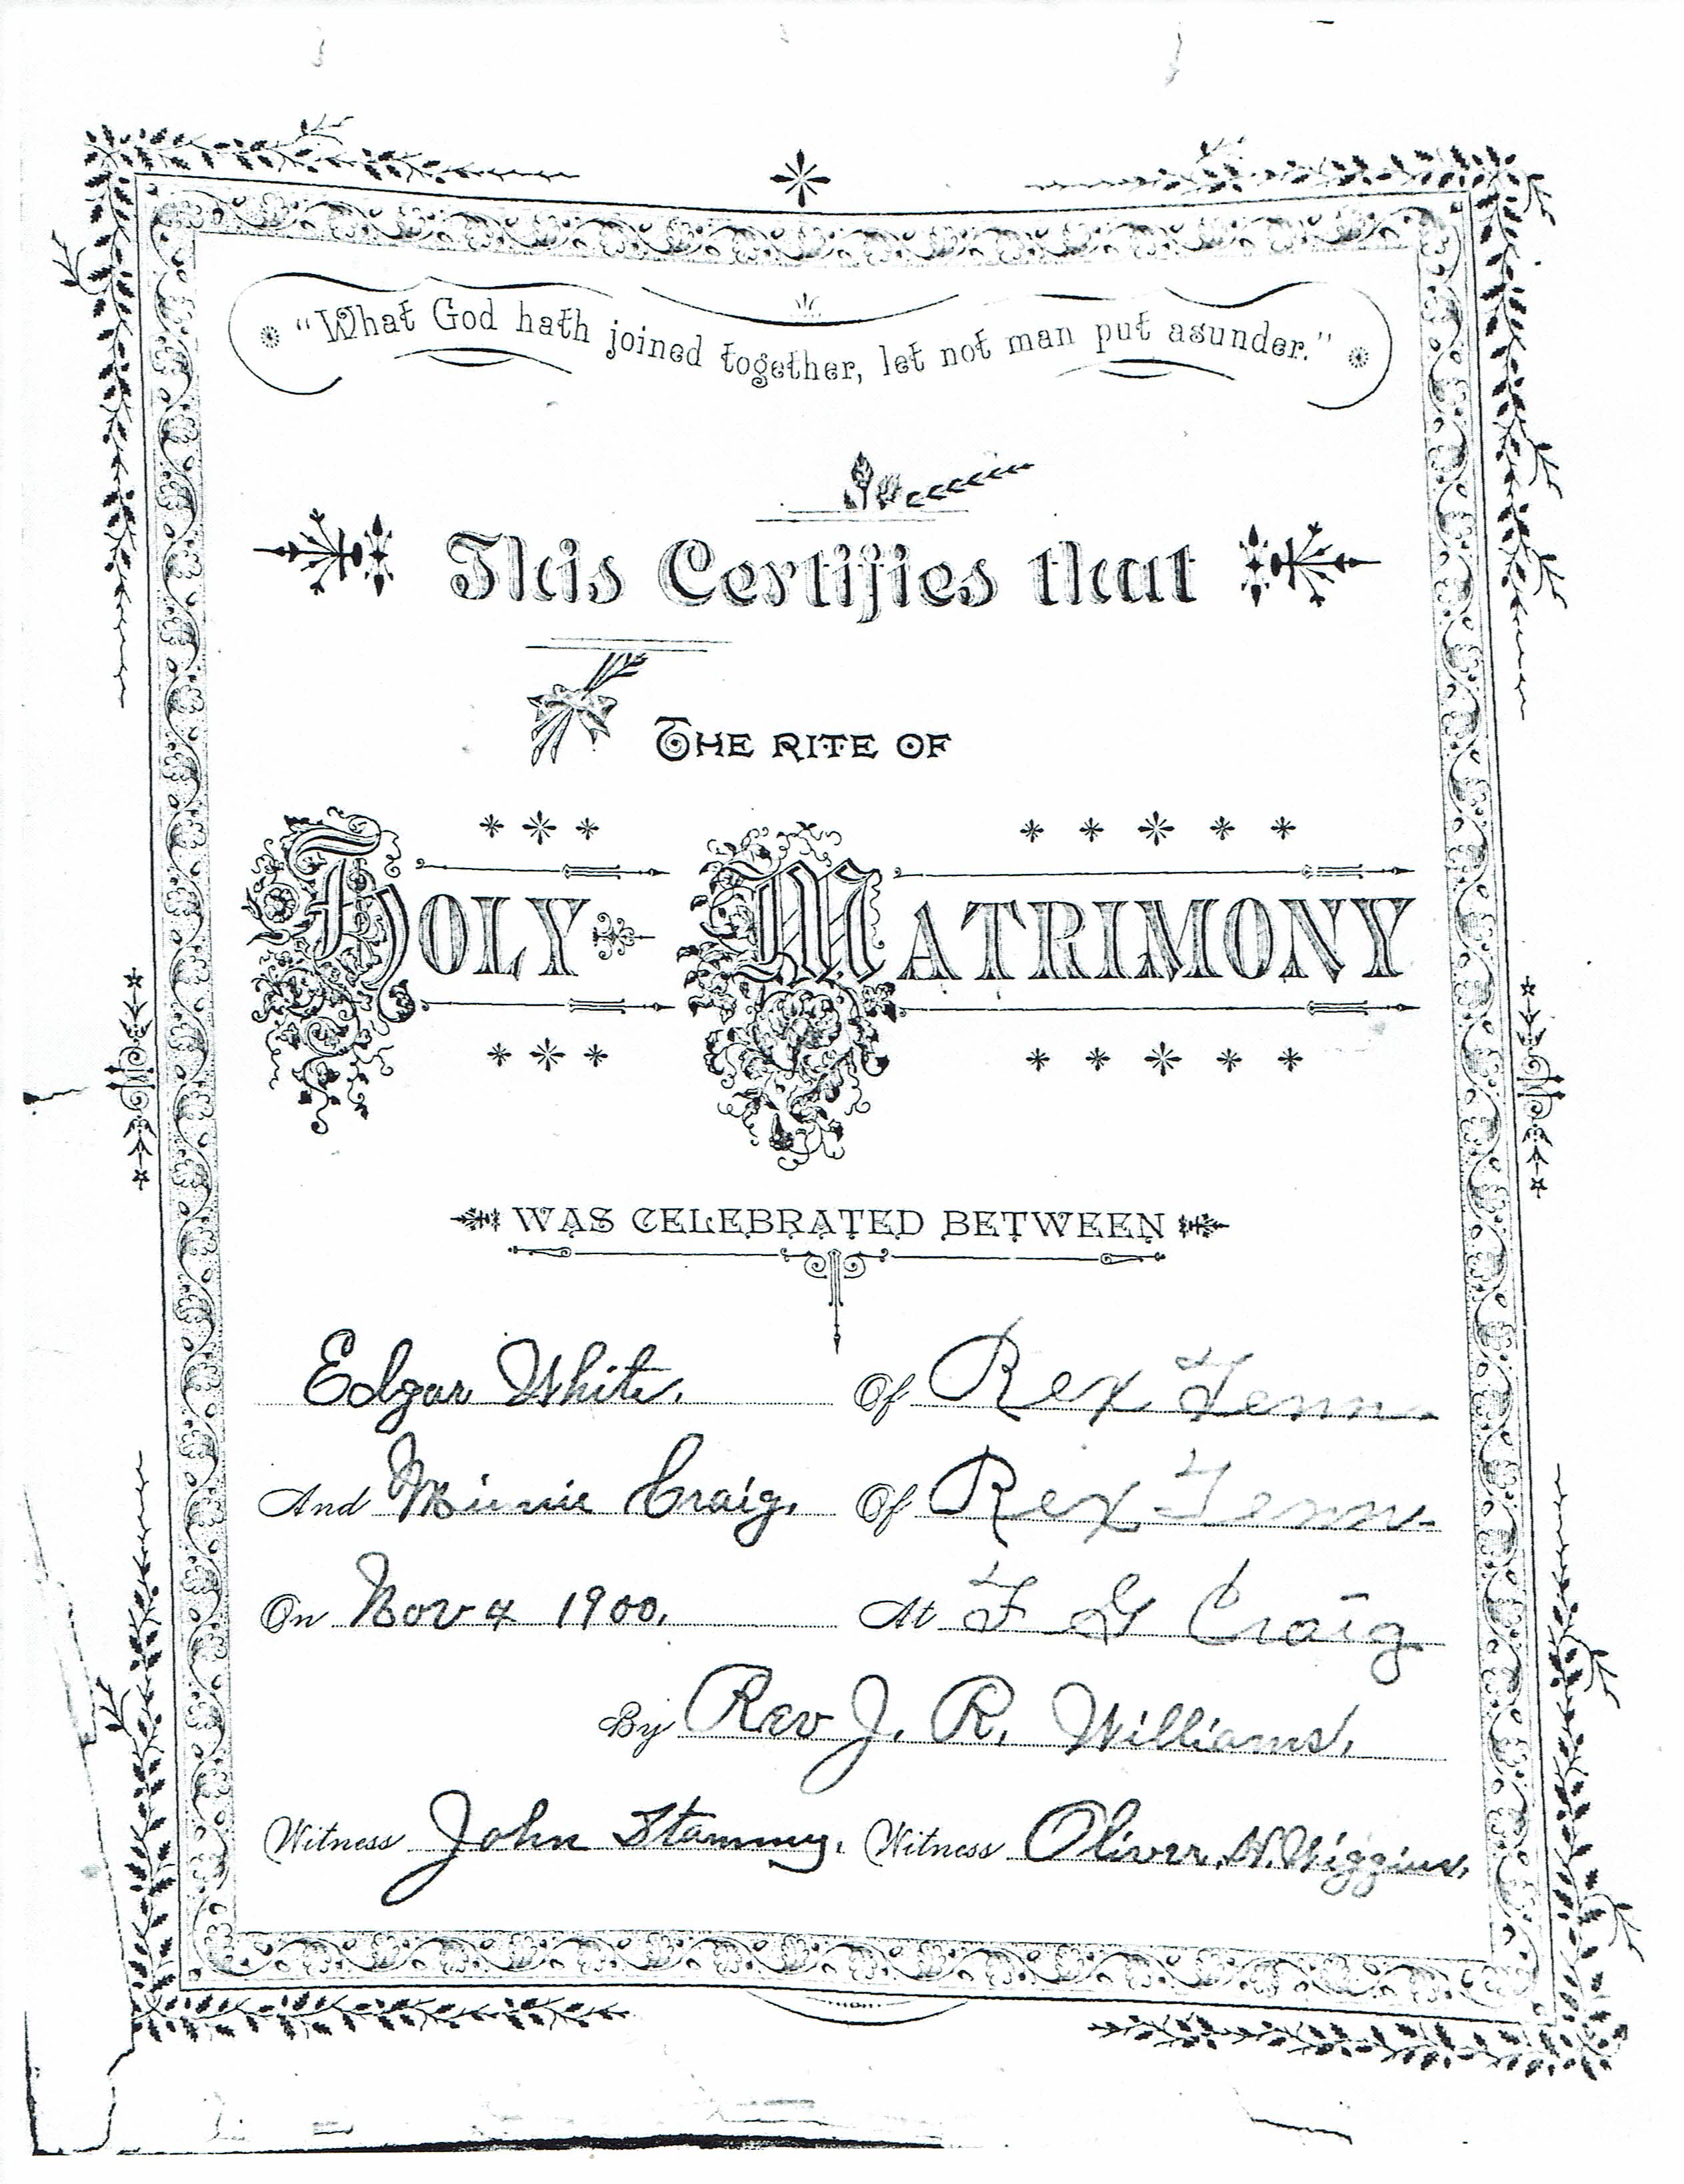 "What God hath joined together, let not man put asunder."
This Certifies that
THE RITE OF
HOLY MATRIMONY
WAS CELEBRATED BETWEEN
Edgar White. Of Rex Tenn.
And Minnie Craig. Of Rex Tenn.
On Nov 4 1900. At F G Craig
By Rev J. R. Williams.
Witness John Stammy. Witness Oliver. W. Wiggins.